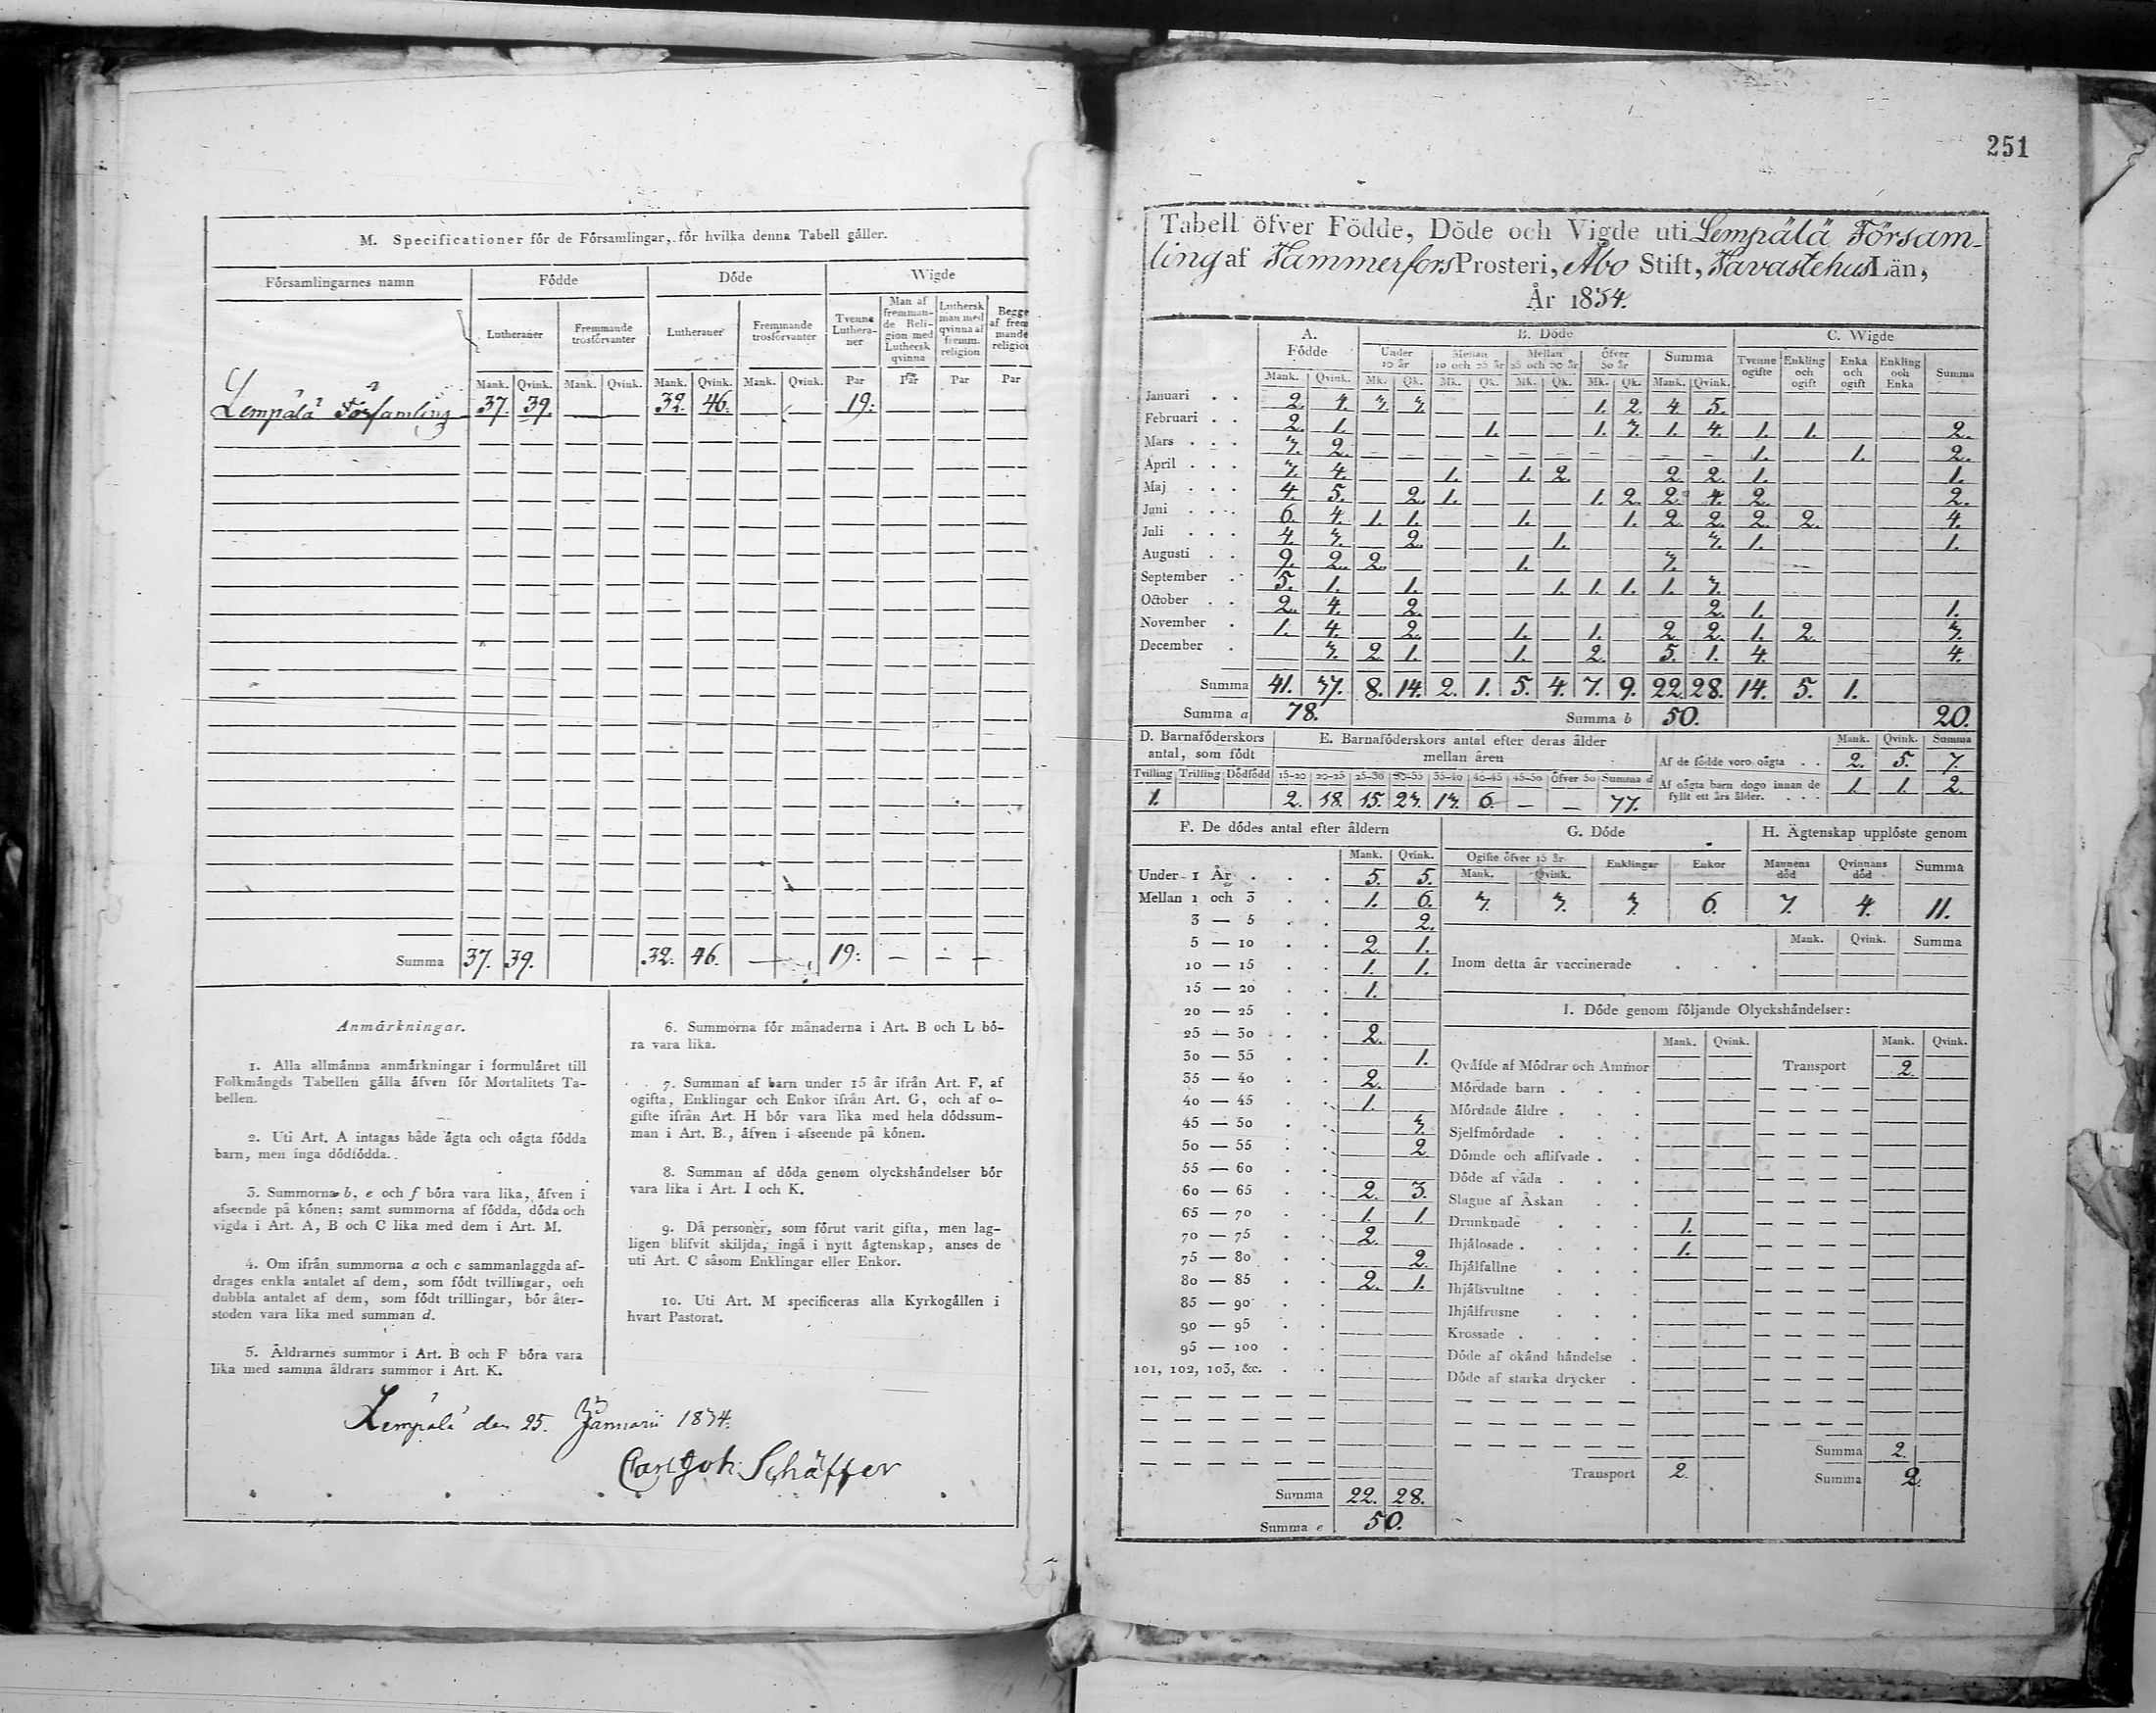 M. Specificationer för de Församlingar, för hvilka denna Tabell gäller.
Församlingarnes namn Födde Döde Wigde
Lutheraner Fremmande trosförvanter Lutheraner Fremmande trosförvanter Tvenne Lutheraner Man af fremmande Religion med Luthersk qvinna Luthersk man med qvinna af fremm. religion Begge af fremmande religion
Mank. Qvink. Mank. Qvink. Mank. Qvink. Mank. Qvink. Par Par Par Par
Lempälä Församling 37. 39. — — 32. 46. — — 19:
Summa 37. 39. 32. 46. — — 19: — — —
Anmärkningar.
1. Alla allmänna anmärkningar i formuläret till
Folkmängds Tabellen gälla äfven för Mortalitets Ta-
bellen.
2. Uti Art. A intagas både ägta och oägta födda
barn, men inga dödfödda.
3. Summorna b, e och f böra vara lika, äfven i
afseende på könen; samt summorna af födda, döda och
vigda i Art. A, B och C lika med dem i Art. M.
4. Om ifrån summorna a och c sammanlaggda af-
drages enkla antalet af dem, som födt tvillingar, och
dubbla antalet af dem, som födt trillingar, bör åter-
stoden vara lika med summan d.
5. Åldrarnes summor i Art. B och F böra vara
lika med samma åldrars summor i Art. K.
6. Summorna för månaderna i Art. B och L bö-
ra vara lika.
7. Summan af barn under 15 år ifrån Art. F, af
ogifta, Enklingar och Enkor ifrån Art. G, och af o-
gifte ifrån Art. H bör vara lika med hela dödssum-
man i Art. B., äfven i afseende på könen.
8. Summan af döda genom olyckshändelser bör
vara lika i Art. I och K.
9. Då personer, som förut varit gifta, men lag-
ligen blifvit skiljda, ingå i nytt ägtenskap, anses de
uti Art. C såsom Enklingar eller Enkor.
10. Uti Art. M specificeras alla Kyrkogällen i
hvart Pastorat.
Lempälä den 25. Januarii 1834.
Carl Joh. Schäffer
251
Tabell öfver Födde, Döde och Vigde uti Lempälä Försam-
ling af Tammerfors Prosteri, Åbo Stift, Tavastehus Län,
År 1834.
A. Födde B. Döde C. Wigde
Under 10 år Mellan 10 och 25 år Mellan 25 och 50 år Öfver 50 år Summa Tvenne ogifte Enkling och ogift Enka och ogift Enkling och Enka Summa
Mank. Qvink. Mk. Qk. Mk. Qk. Mk. Qk. Mk. Qk. Mank. Qvink.
Januari 2. 4. 3. 3. 1. 2. 4. 5.
Februari 2. 1. 1. 1. 3. 1. 4. 1. 1. 2.
Mars 3. 2. 1. 1. 2.
April 3. 4. 1. 1. 2. 2. 2. 1. 1.
Maj 4. 5. 2. 1. 1. 2. 2. 4. 2. 2.
Juni 6. 4. 1. 1. 1. 1. 2. 2. 2. 2. 4.
Juli 4. 3. 2. 1. 3. 1. 1.
Augusti 9. 2. 2. 1. 3.
September 5. 1. 1. 1. 1. 1. 1. 3.
October 2. 4. 2. 2. 1. 1.
November 1. 4. 2. 1. 1. 2. 2. 1. 2. 3.
December 3. 2. 1. 1. 2. 5. 1. 4. 4.
Summa 41. 37. 8. 14. 2. 1. 5. 4. 7. 9. 22. 28. 14. 5. 1.
Summa a 78. Summa b 50. 20.
D. Barnaföderskors antal, som födt
Tvilling Trilling Dödfödd
1.
E. Barnaföderskors antal efter deras ålder mellan åren
15-20 20-25 25-30 30-35 35-40 40-45 45-50 Öfver 50 Summa d
2. 18. 15. 23. 13. 6. — — 77.
Mank. Qvink. Summa
Af de födde voro oägta 2. 5. 7.
Af oägta barn dogo innan de fyllt ett års ålder. 1. 1. 2.
F. De dödes antal efter åldern
Mank. Qvink.
Under 1 År 5. 5.
Mellan 1 och 3 1. 6.
3 — 5 2.
5 — 10 2. 1.
10 — 15 1. 1.
15 — 20 1.
20 — 25
25 — 30 2.
30 — 35 1.
35 — 40 2.
40 — 45 1.
45 — 50 3.
50 — 55 2
55 — 60
60 — 65 2. 3.
65 — 70 1. 1.
70 — 75 2.
75 — 80 2.
80 — 85 2. 1.
85 — 90
90 — 95
95 — 100
101, 102, 103, &c.
Summa 22. 28.
Summa e 50.
G. Döde
Ogifte öfver 15 år Enklingar Enkor
Mank. Qvink.
3. 3. 3. 6.
H. Ägtenskap upplöste genom
Mannens död Qvinnans död Summa
7. 4. 11.
Mank. Qvink. Summa
Inom detta år vaccinerade
I. Döde genom följande Olyckshändelser:
Mank. Qvink. Mank. Qvink.
Qväfde af Mödrar och Ammor Transport 2.
Mördade barn
Mördade äldre
Sjelfmördade
Dömde och aflifvade
Döde af våda
Slagne af Åskan
Drunknade 1.
Ihjälosade 1.
Ihjälfallne
Ihjälsvultne
Ihjälfrusne
Krossade
Döde af okänd händelse
Döde af starka drycker
Summa 2.
Transport 2. Summa 2.